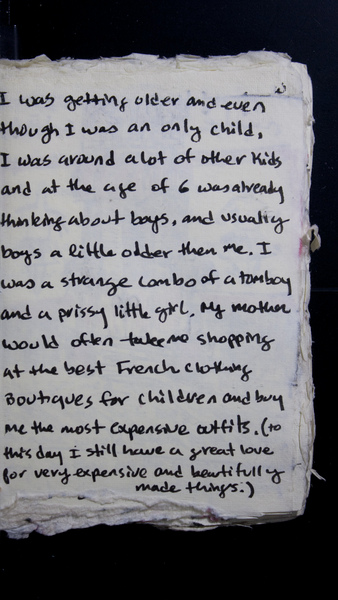 I was getting older and even
though I was an only child,
I was around a lot of other kids
and at the age of 6 was already
thinking about boys, and usually
boys a little odder then me. I
was a strange combo of a tomboy
and a prissy little girl. My mother
would often take me shopping
at the best French clothing
Boutiques for children and buy
me the most expensive outfits. (to
this day I still have a great love
for very expensive and beautifully
made things.)